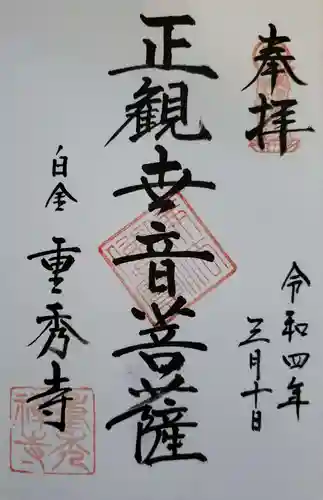 奉拝
令和四年
三月十日
正観世音菩薩
白金
重秀寺